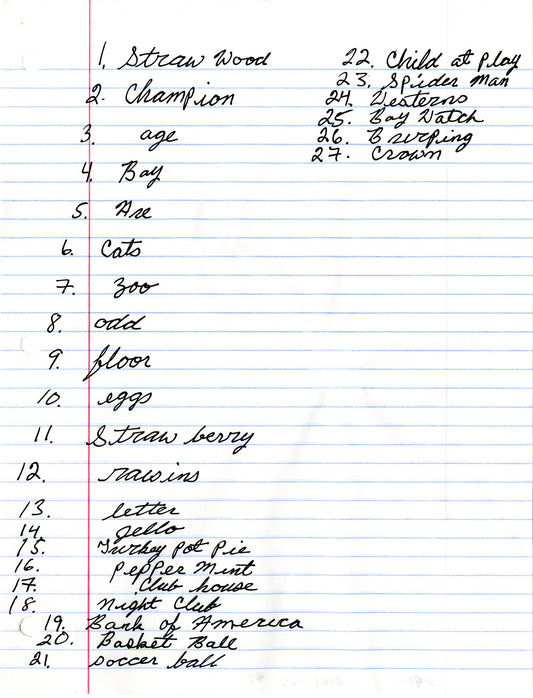 1. Straw Wood
2. Champion
3. age
4. Bay
5. Are
6. Cats
7. Zoo
8. odd
9. floor
10. eggs
11. Straw berry
12. raisins
13. letter
14. jello
15. Turkey Pot Pie
16. Pepper Mint
17. Club house
18. Night Club
19. Bank of America
20. Basket Ball
21. soccer ball
22. Child at Play
23. Spider Man
24. Westerns
25. Bay Watch
26. Burping
27. Crown